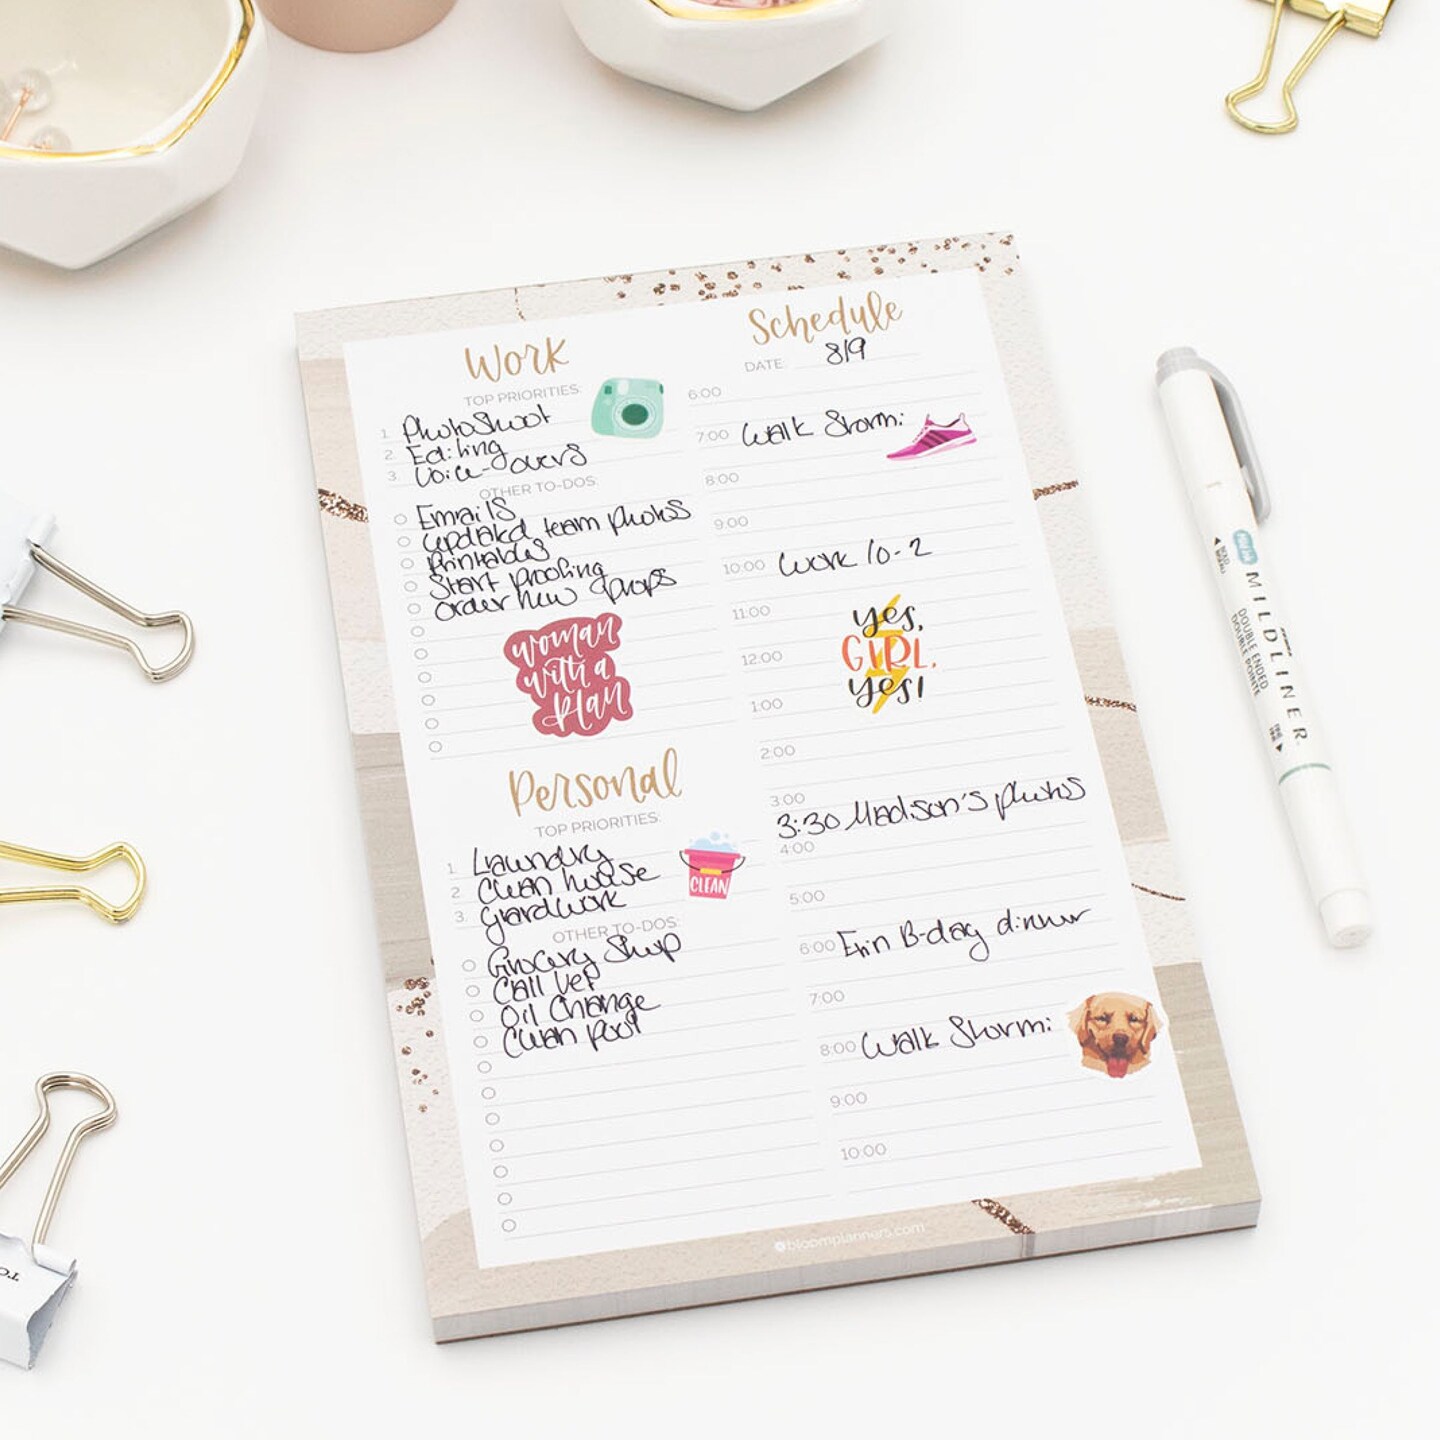 Work
TOP PRIORITIES:
1. Photoshoot
2. Editing
3. Voice-overs
OTHER TO-DOS:
Emails
updated team photos
Printables
Start proofing
order new props
woman
with a
plan
Personal
TOP PRIORITIES:
1. Laundry
2. Clean house
3. Yardwork
CLEAN
OTHER TO-DOS:
Grocery Shop
Call Vet
Oil Change
Clean pool
Schedule
DATE: 8/9
6:00
7:00 Walk Stormi
8:00
9:00
10:00 Work 10-2
11:00
12:00
1:00
yes,
GIRL,
yes!
2:00
3:00
3:30 Madison's photos
4:00
5:00
6:00 Erin B-day dinner
7:00
8:00 Walk Stormi
9:00
10:00
bloomplanners.com
MILDLINER
DOUBLE ENDED
DOUBLE POINTE